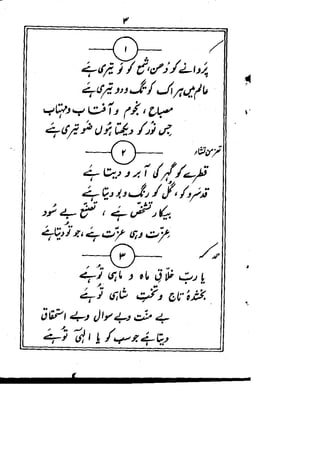 ۳
۱
پروانے کو دُھن، شمع کو لَو تیری ہے
عالم میں ہر اک کو تگ و دو تیری ہے
مصباح، نجوم و آفتاب و مہتاب
جس نور کو دیکھتا ہوں ضَو تیری ہے
۲
قطرے کو گہر کی آبرو دیتا ہے
قدسرو کو، گُل کو رنگ و بو دیتا ہے
بیکار تشخص ہے، تصنّع بے سود
عزّت وہی عزّت ہے، جو تُو دیتا ہے
۳
یا رب خلّاقِ ماہ و ماہی تُو ہے
بخشندہ تاج و تختِ شاہی تُو ہے
بے منّت و بے سوال و بے استحقاق
دیتا ہے جو سب کو یا الٰہی تُو ہے